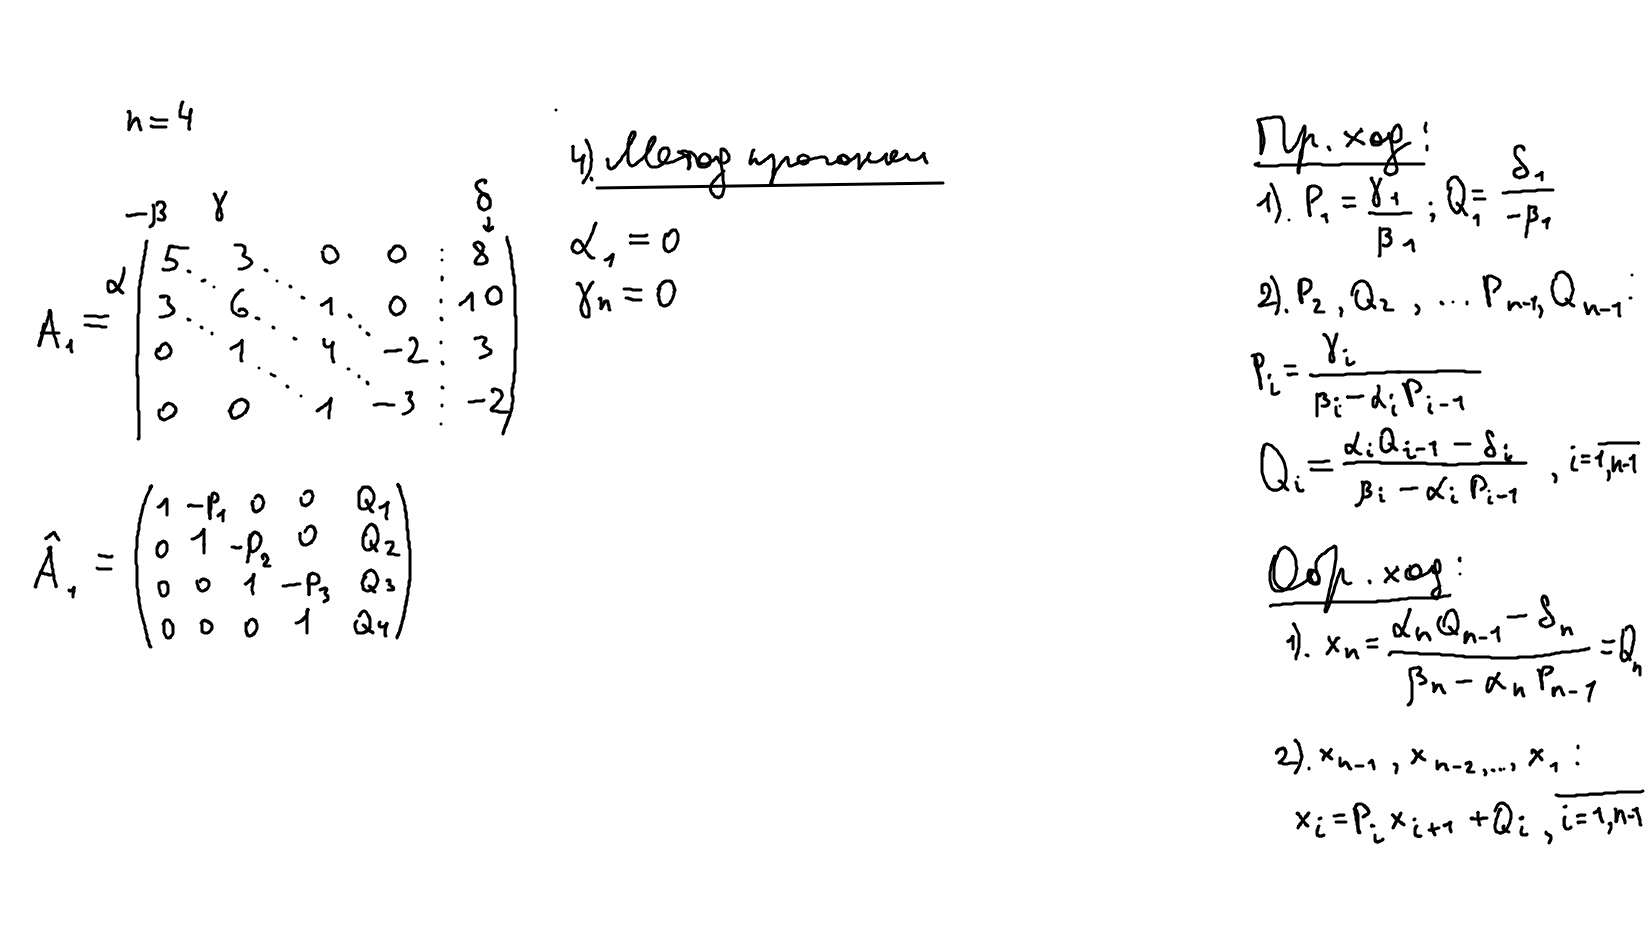 n = 4
-β γ δ
↓
α
A₁ =
5 3 0 0 ⋮ 8
3 6 1 0 ⋮ 10
0 1 4 -2 ⋮ 3
0 0 1 -3 ⋮ -2
Â₁ =
1 -P₁ 0 0 Q₁
0 1 -P₂ 0 Q₂
0 0 1 -P₃ Q₃
0 0 0 1 Q₄
4). Метод прогонки
α₁ = 0
γₙ = 0
Пр. ход:
1). P₁ = γ₁ / β₁ ; Q₁ = δ₁ / -β₁
2). P₂, Q₂, ... Pₙ₋₁, Qₙ₋₁:
Pᵢ = γᵢ / (βᵢ - αᵢ Pᵢ₋₁)
Qᵢ = (αᵢ Qᵢ₋₁ - δᵢ) / (βᵢ - αᵢ Pᵢ₋₁) , i = 1,n-1
Обр. ход:
1). xₙ = (αₙ Qₙ₋₁ - δₙ) / (βₙ - αₙ Pₙ₋₁) = Qₙ
2). xₙ₋₁, xₙ₋₂, ..., x₁:
xᵢ = Pᵢ xᵢ₊₁ + Qᵢ, i = 1,n-1